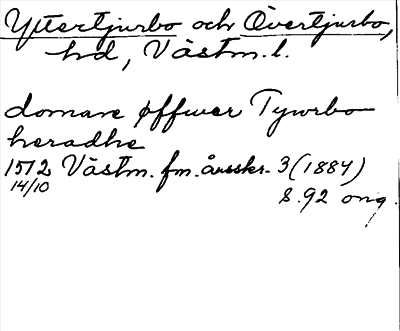 Yttertjurbo och Övertjurbo,
hd, Västm. l.
domare øffwer Tywrbo
heradhe
1512 Västm. fm. årsskr. 3 (1884)
14/10
S. 92 orig.